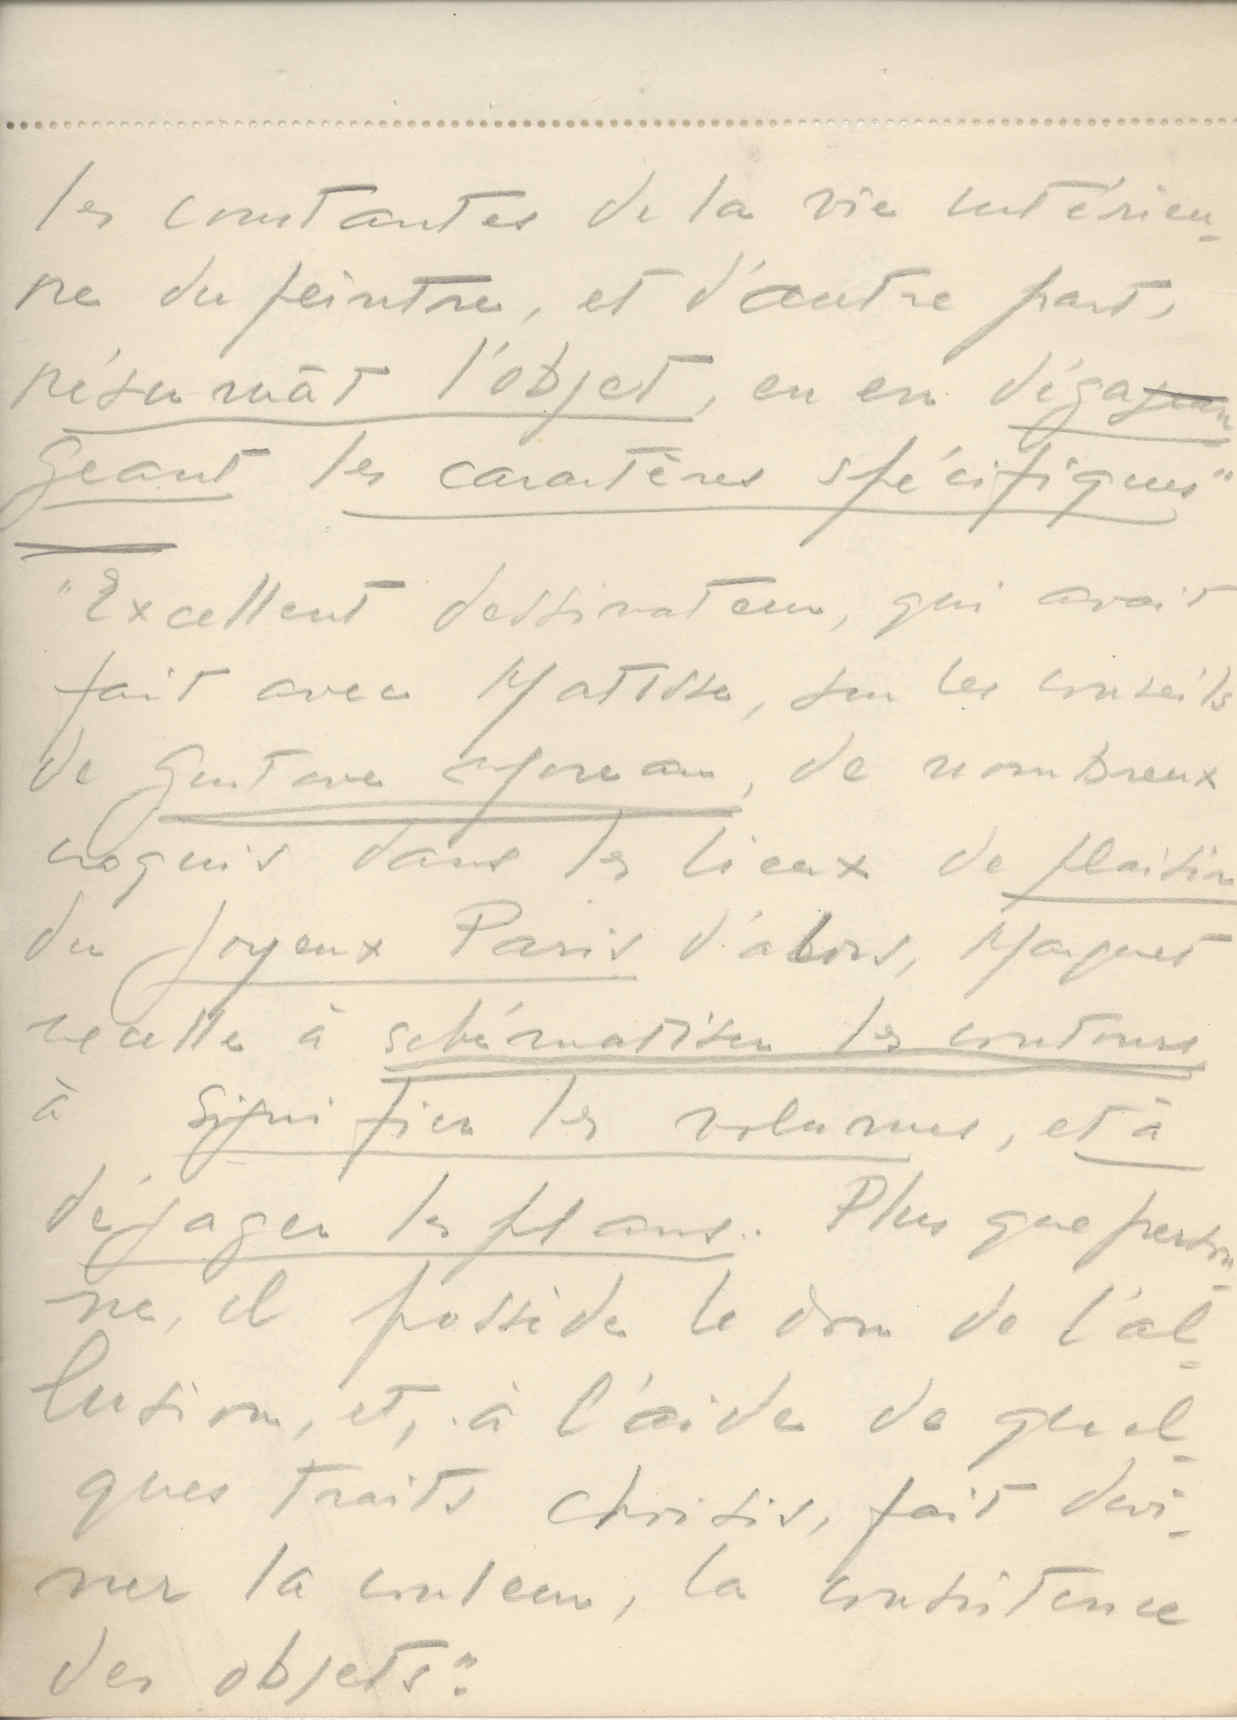 les constantes de la vie intérieu-
re du peintre, et d'autre part,
résumât l'objet, en en déga
geant les caractères spécifiques"
"Excellent dessinateur, qui avait
fait avec Matisse, sur les conseils
de Gustave Moreau, de nombreux
croquis dans les lieux de plaisir
du joyeux Paris d'alors, Marquet
excelle à schématiser les contours
à signifier les volumes, et à
dégager les plans. Plus que person-
ne, il possède le don de l'al-
lusion, et, à l'aide de quel-
ques traits choisis, fait devi-
ner la couleur, la consistence
des objets".